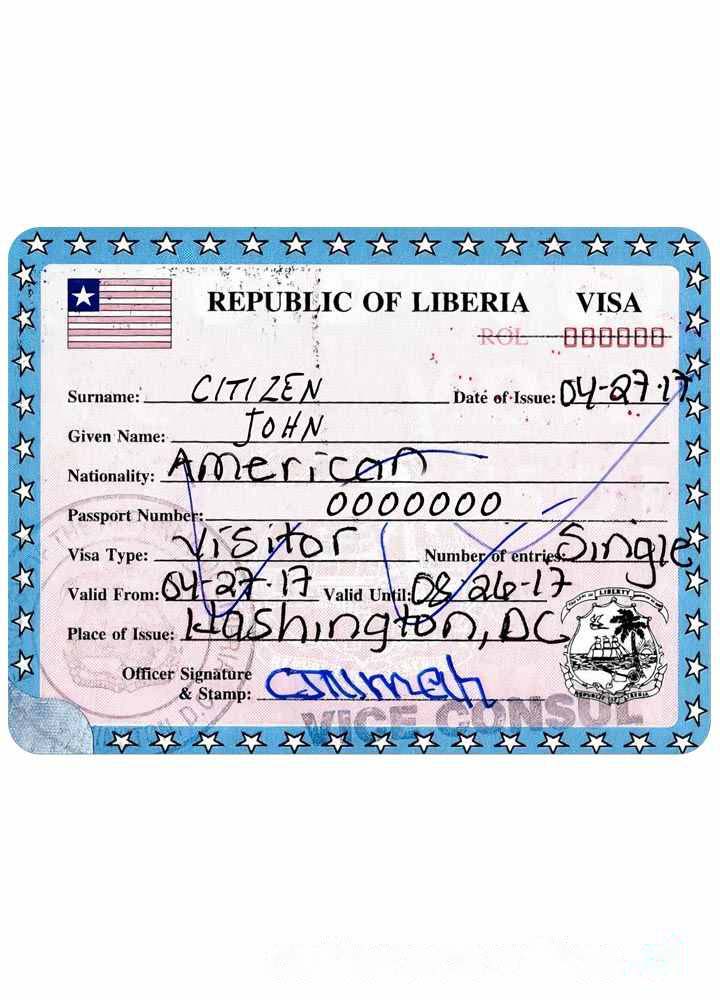 REPUBLIC OF LIBERIA VISA
ROL 000000
Surname: CITIZEN Date of Issue: 04-27-17
Given Name: JOHN
Nationality: American
Passport Number: 0000000
Visa Type: Visitor Number of entries: Single
Valid From: 04-27-17 Valid Until: 08-26-17
Place of Issue: Washington, DC
LIBERTY
Officer Signature
& Stamp:
REPUBLIC OF LIBERIA
VICE CONSUL